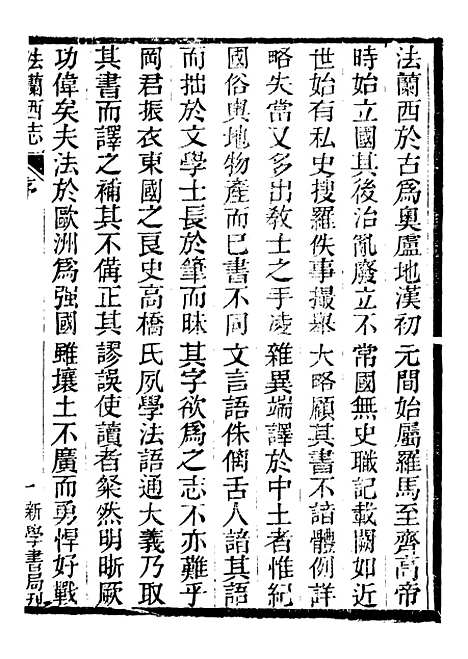 法蘭西於古爲奥盧地漢初元間始屬羅馬至齊高帝
時始立國其後治亂廢立不常國無史職記載闕如近
世始有私史搜羅佚事撮舉大略顧其書不諳體例詳
略失當又多出敎士之手凌雜異端譯於中土者惟紀
國俗輿地物產而已書不同文言語侏𠌯舌人諳其語
而拙於文學士長於筆而昧其字欲爲之志不亦難乎
岡君振衣東國之良史高橋氏夙學法語通大義乃取
其書而譯之補其不備正其謬誤使讀者粲然明晰厥
功偉矣夫法於歐洲爲强國雖壤土不廣而勇悍好戰
法蘭西志 序 一 新學書局刊